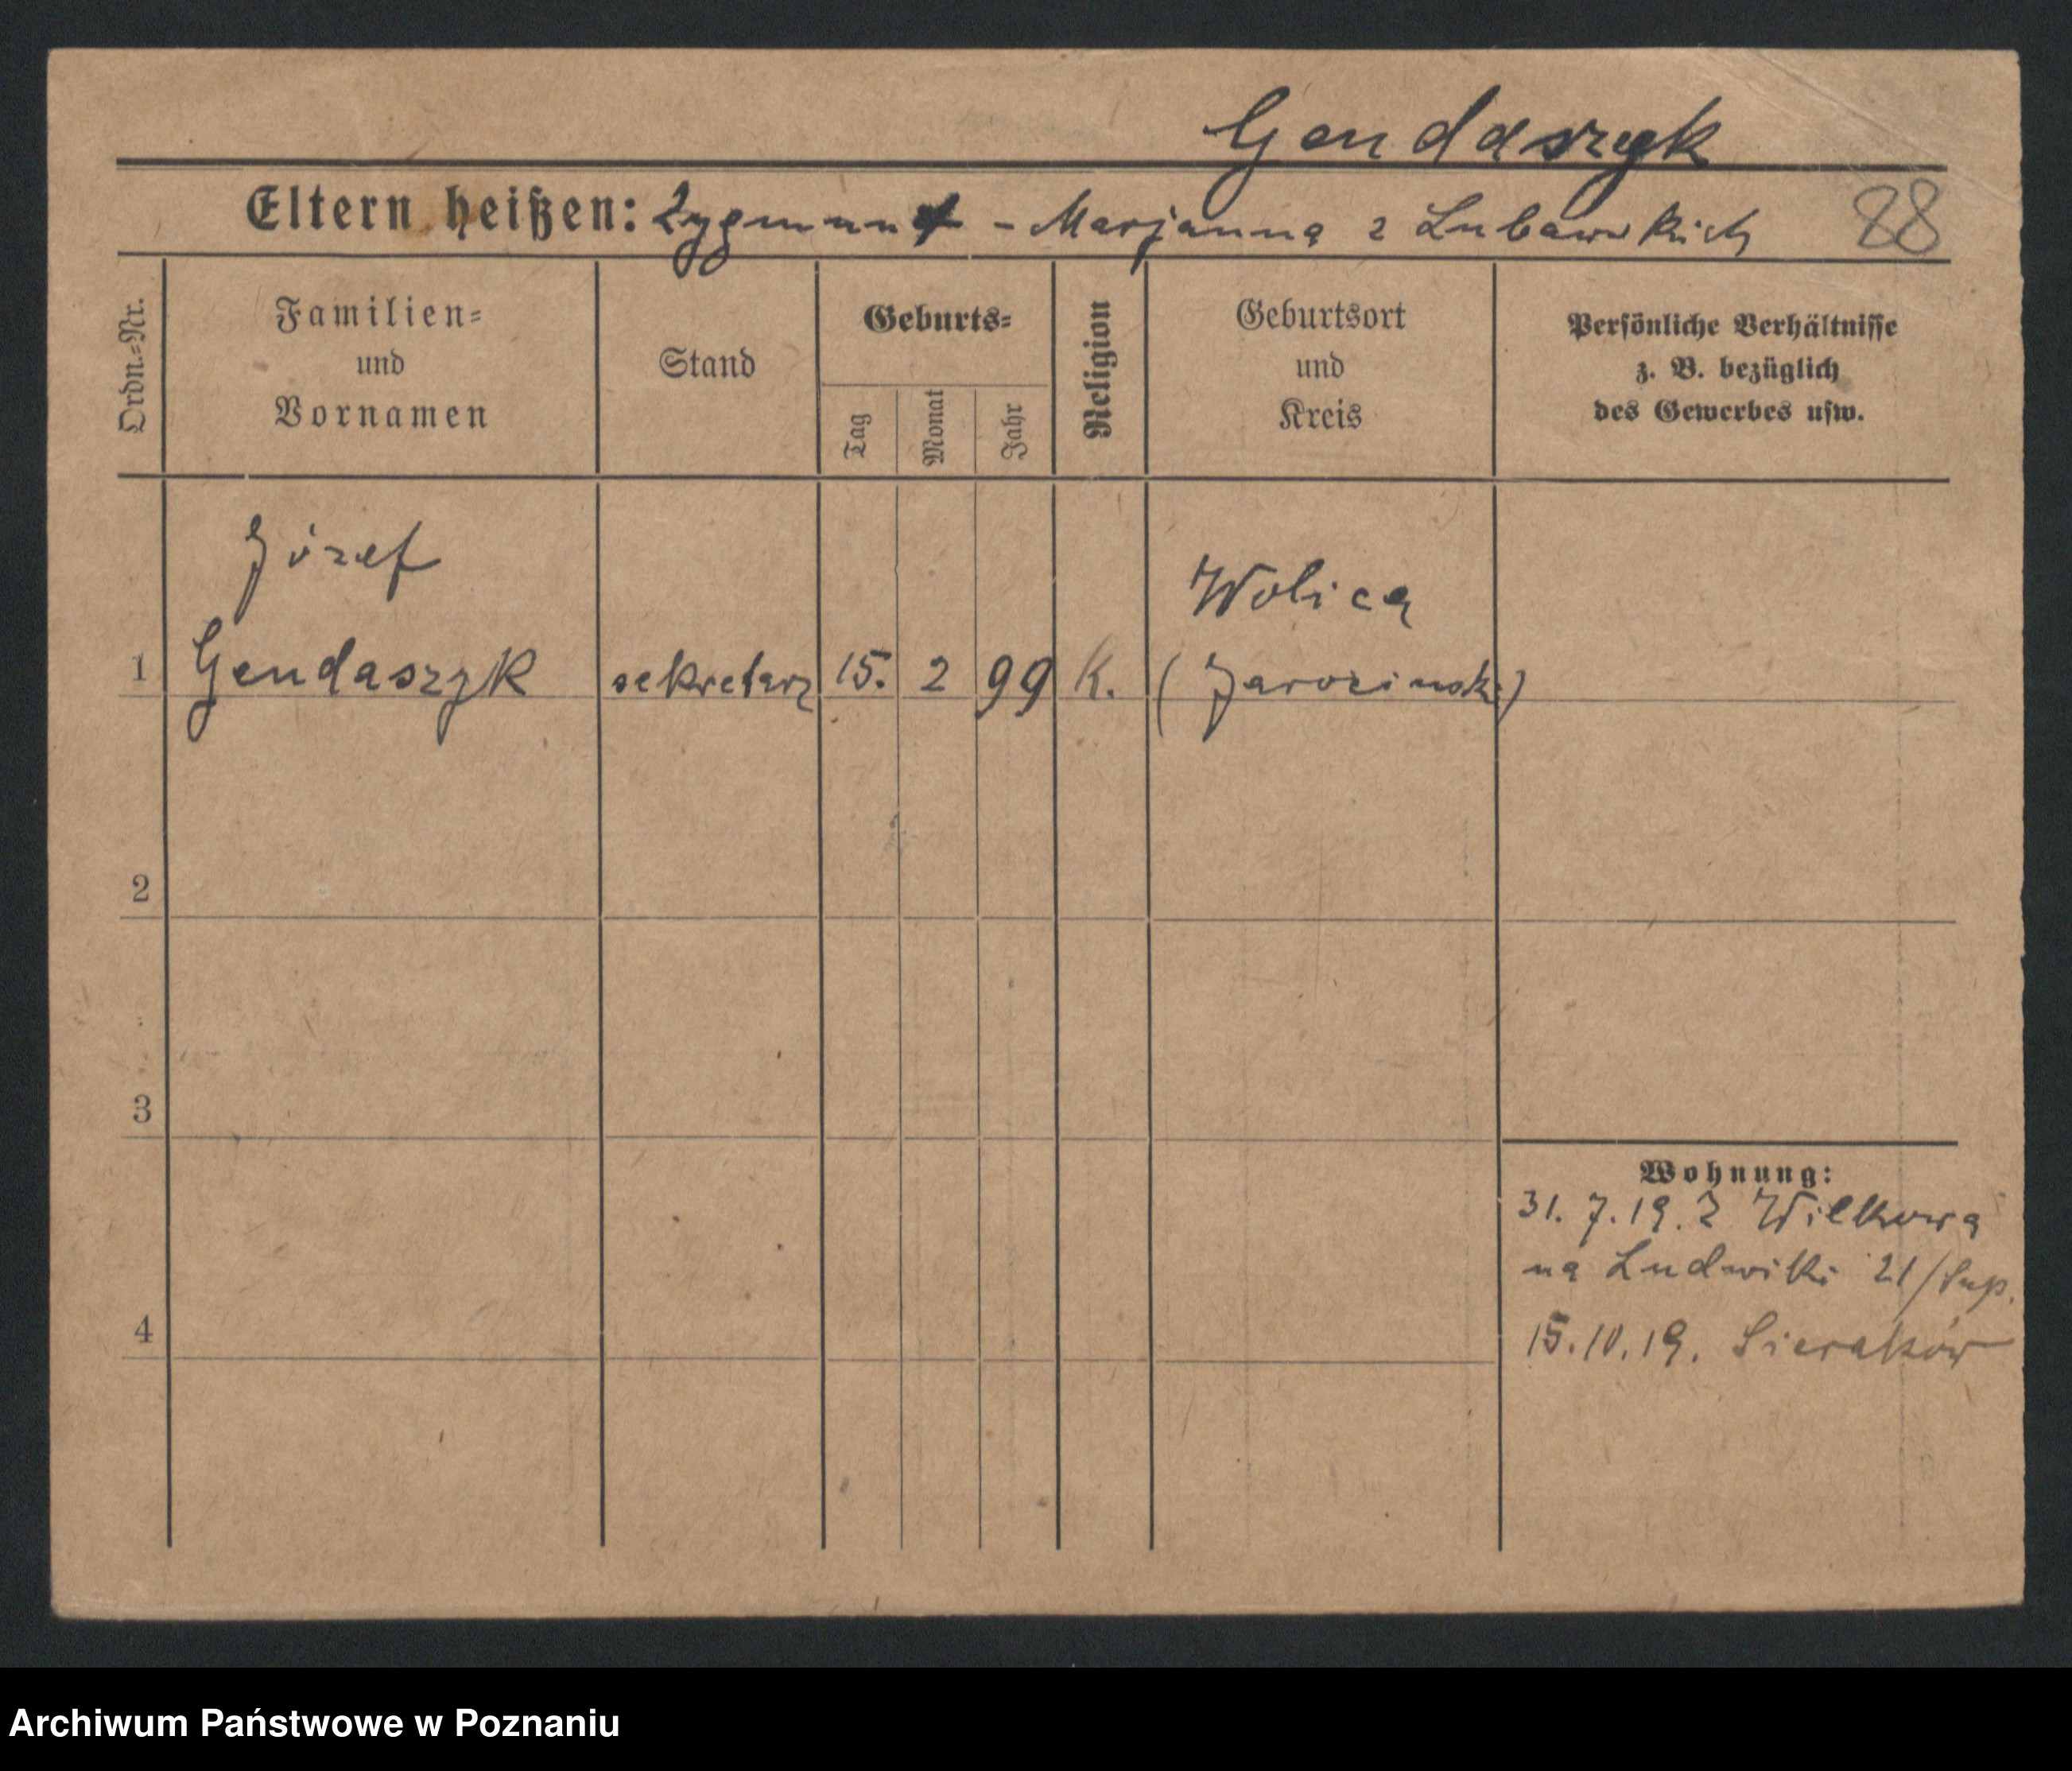 Gendaszyk
Eltern heißen: Zygmunt - Marjanna z Lubawskich 88
Ordn.-Nr.
Familien-
und
Vornamen
Stand
Geburts-
Tag
Monat
Jahr
Religion
Geburtsort
und
Kreis
Persönliche Verhältnisse
z. B. bezüglich
des Gewerbes usw.
Józef
Wolica
1 Gendaszyk sekretarz 15. 2 99 K. (Jarocinski)
2
3
Wohnung:
31. 7. 19. z Wilkowa
na Ludwiki 21/
4
15. 10. 19. Sieraków
Archiwum Państwowe w Poznaniu